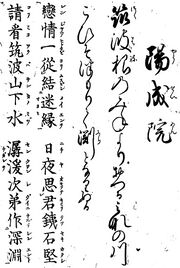 陽成院
筑波根のみねよりおつるみなの川
こひそつもりて淵となりぬる
戀情一從結迷縁　日夜思君鐵石堅
請看筑波山下水　潺湲次第作深淵